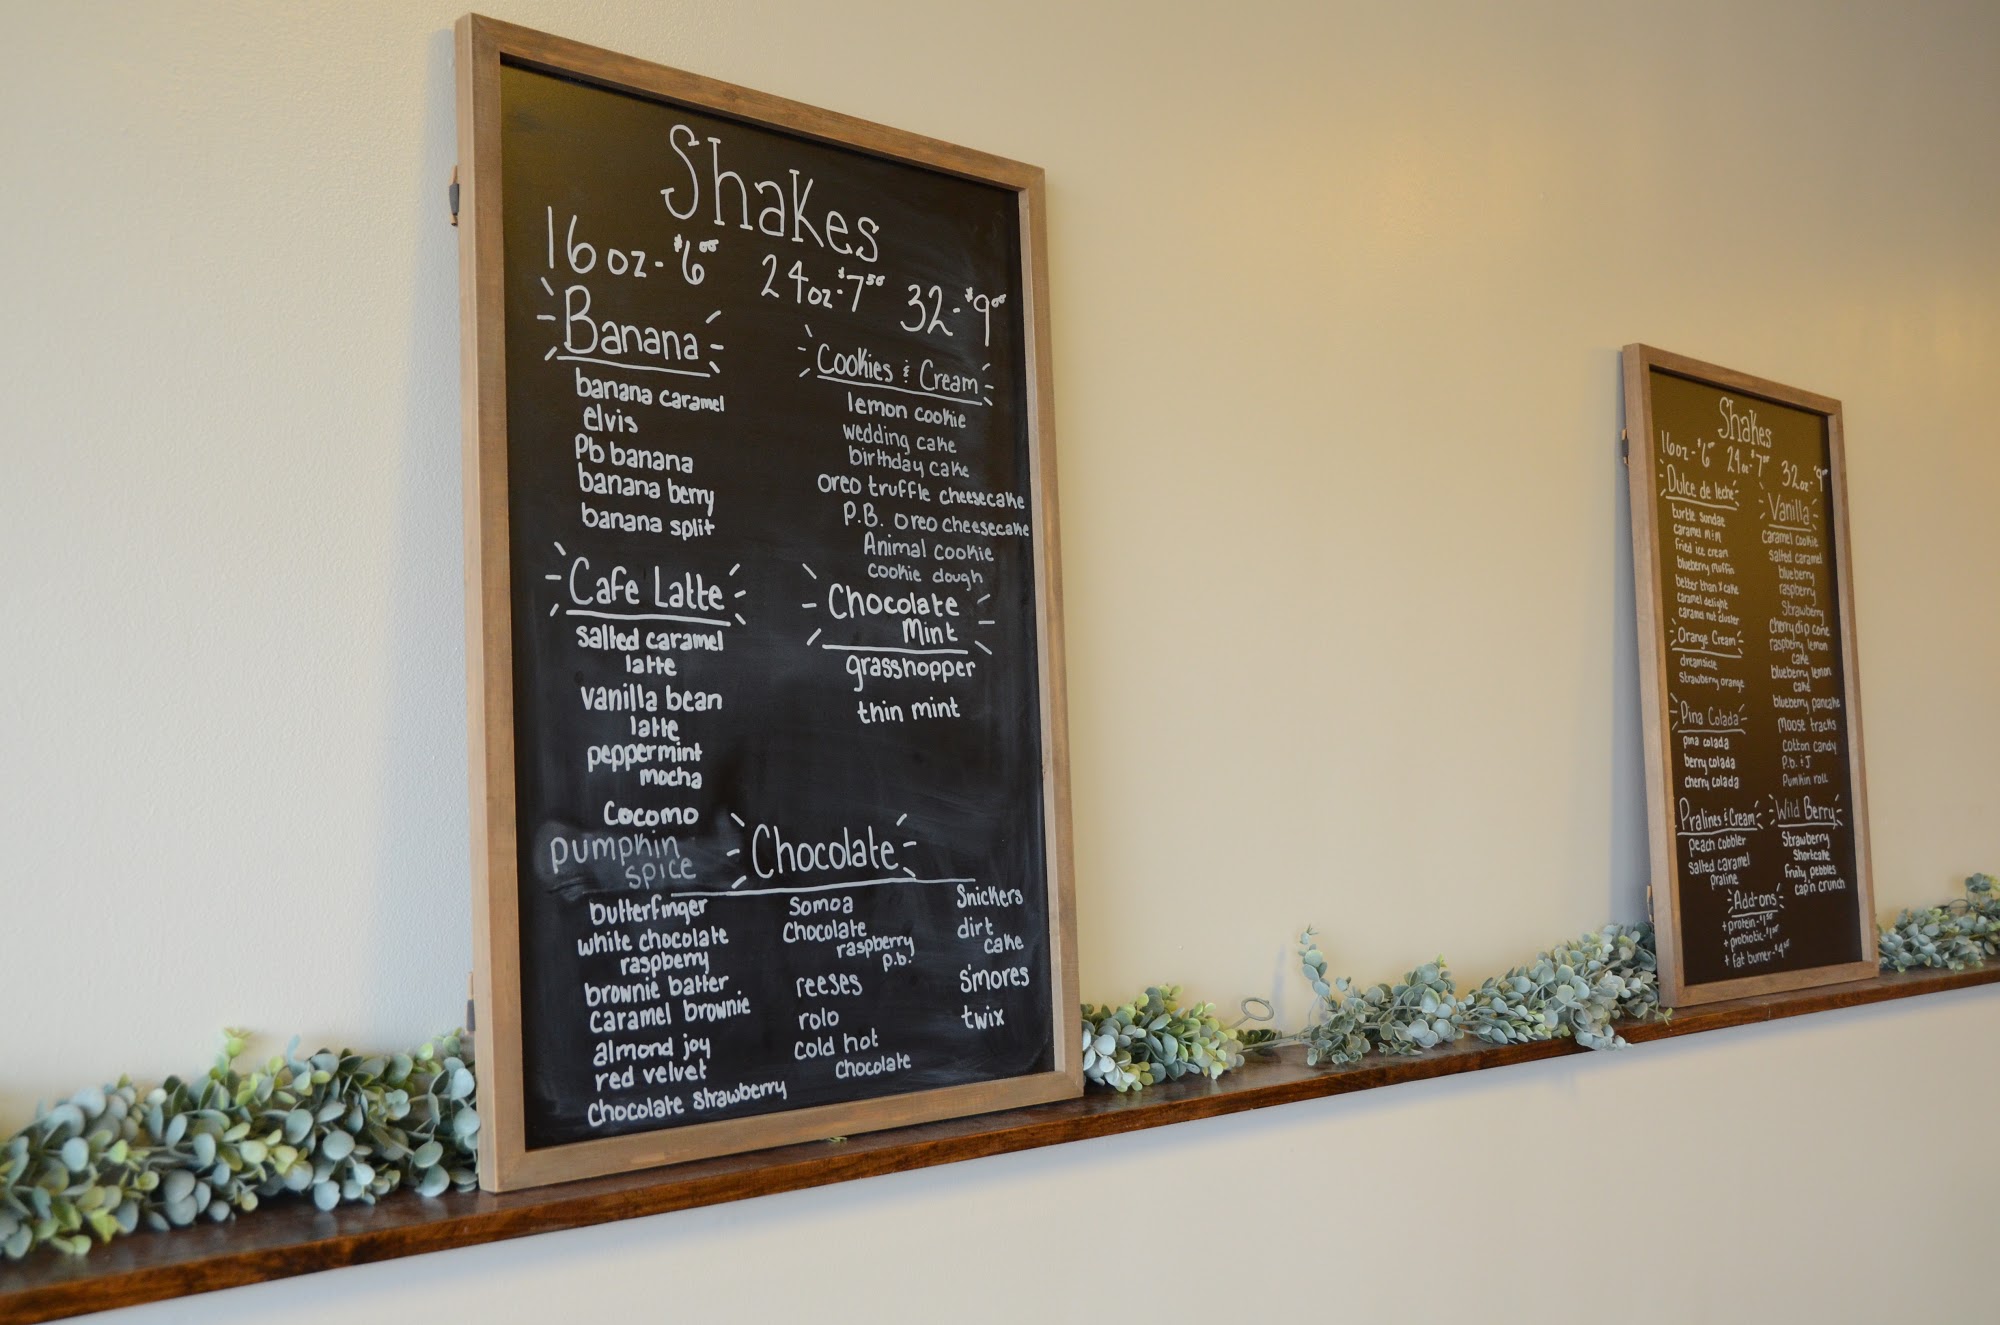 Shakes
16 oz - $6.00 24 oz - $7.50 32 - $9.00
Banana
banana caramel
elvis
Pb banana
banana berry
banana split
Cafe Latte
salted caramel
latte
vanilla bean
latte
peppermint
mocha
Cocomo
pumpkin
spice
Cookies & Cream
lemon cookie
wedding cake
birthday cake
oreo truffle cheesecake
P.B. oreo cheesecake
Animal cookie
cookie dough
Chocolate
Mint
grasshopper
thin mint
Chocolate
butterfinger
white chocolate
raspberry
brownie batter
caramel brownie
almond joy
red velvet
chocolate strawberry
Somoa
Chocolate
raspberry
p.b.
reeses
rolo
cold hot
chocolate
Snickers
dirt
cake
s'mores
twix
Shakes
16oz - $6.00 24oz - $7.50 32oz - $9.00
Dulce de leche
turtle sundae
caramel m&m
fried ice cream
blueberry muffin
better than x cake
caramel delight
caramel nut cluster
Orange Cream
dreamsicle
strawberry orange
Pina Colada
pina colada
berry colada
cherry colada
Pralines & Cream
peach cobbler
salted caramel
praline
Vanilla
caramel cookie
salted caramel
blueberry
raspberry
strawberry
cherry dip cone
raspberry lemon
cake
blueberry lemon
cake
blueberry pancake
moose tracks
cotton candy
P.b. & J
Pumkin roll
Wild Berry
Strawberry
Shortcake
fruity pebbles
cap'n crunch
Add-ons
+ protein - $1.50
+ probiotic - $1.00
+ fat burner - $4.00